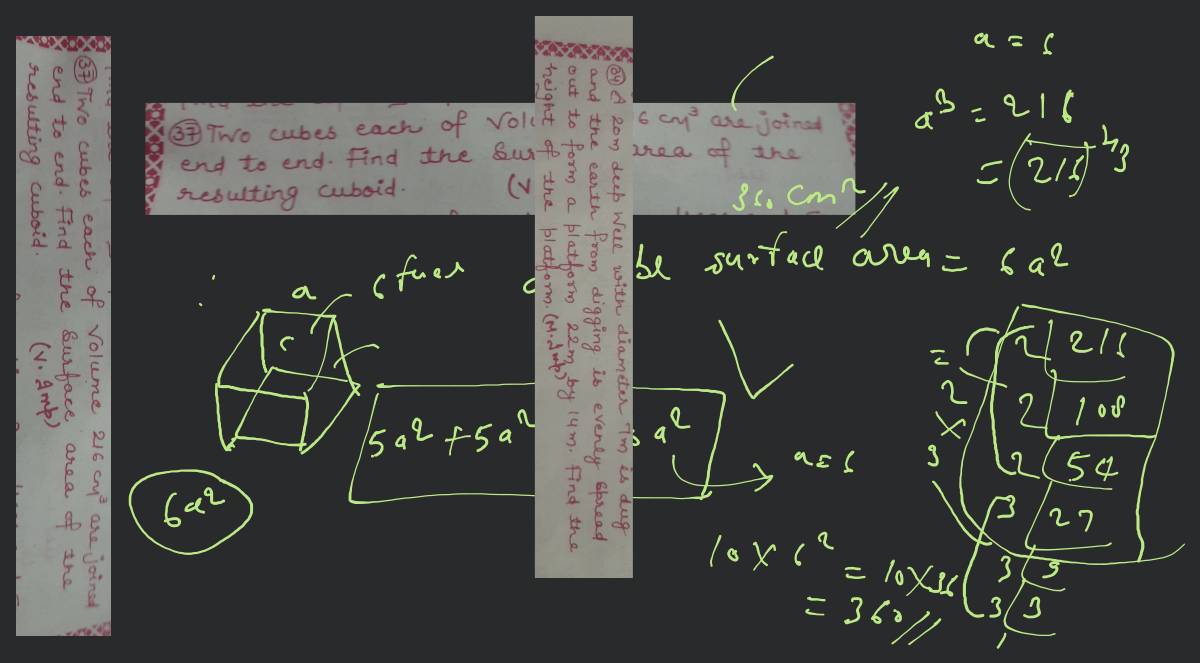 (37) Two cubes each of Volume 216 cm³ are joined
end to end. Find the Surface area of the
resulting cuboid.
(V. Imp)
(37) Two cubes each of Vol
6 cm³ are joined
end to end. Find the Sur
area of the
resulting cuboid.
(V
360 cm²
A 20m deep Well with diameter 7m is dug
and the earth from digging is evenly Spread
out to form a platform 22m by 14m. Find the
height of the platform. (M. Imp)
a = 6
a³ = 216
= (216)^1/3
surface area = 6a²
a
6 faces
5a² + 5a²
a²
a = 6
6a²
10 × 6² = 10×36
= 360
= 2 × 3
2 216
2 108
2 54
3 27
3 9
3 3
1